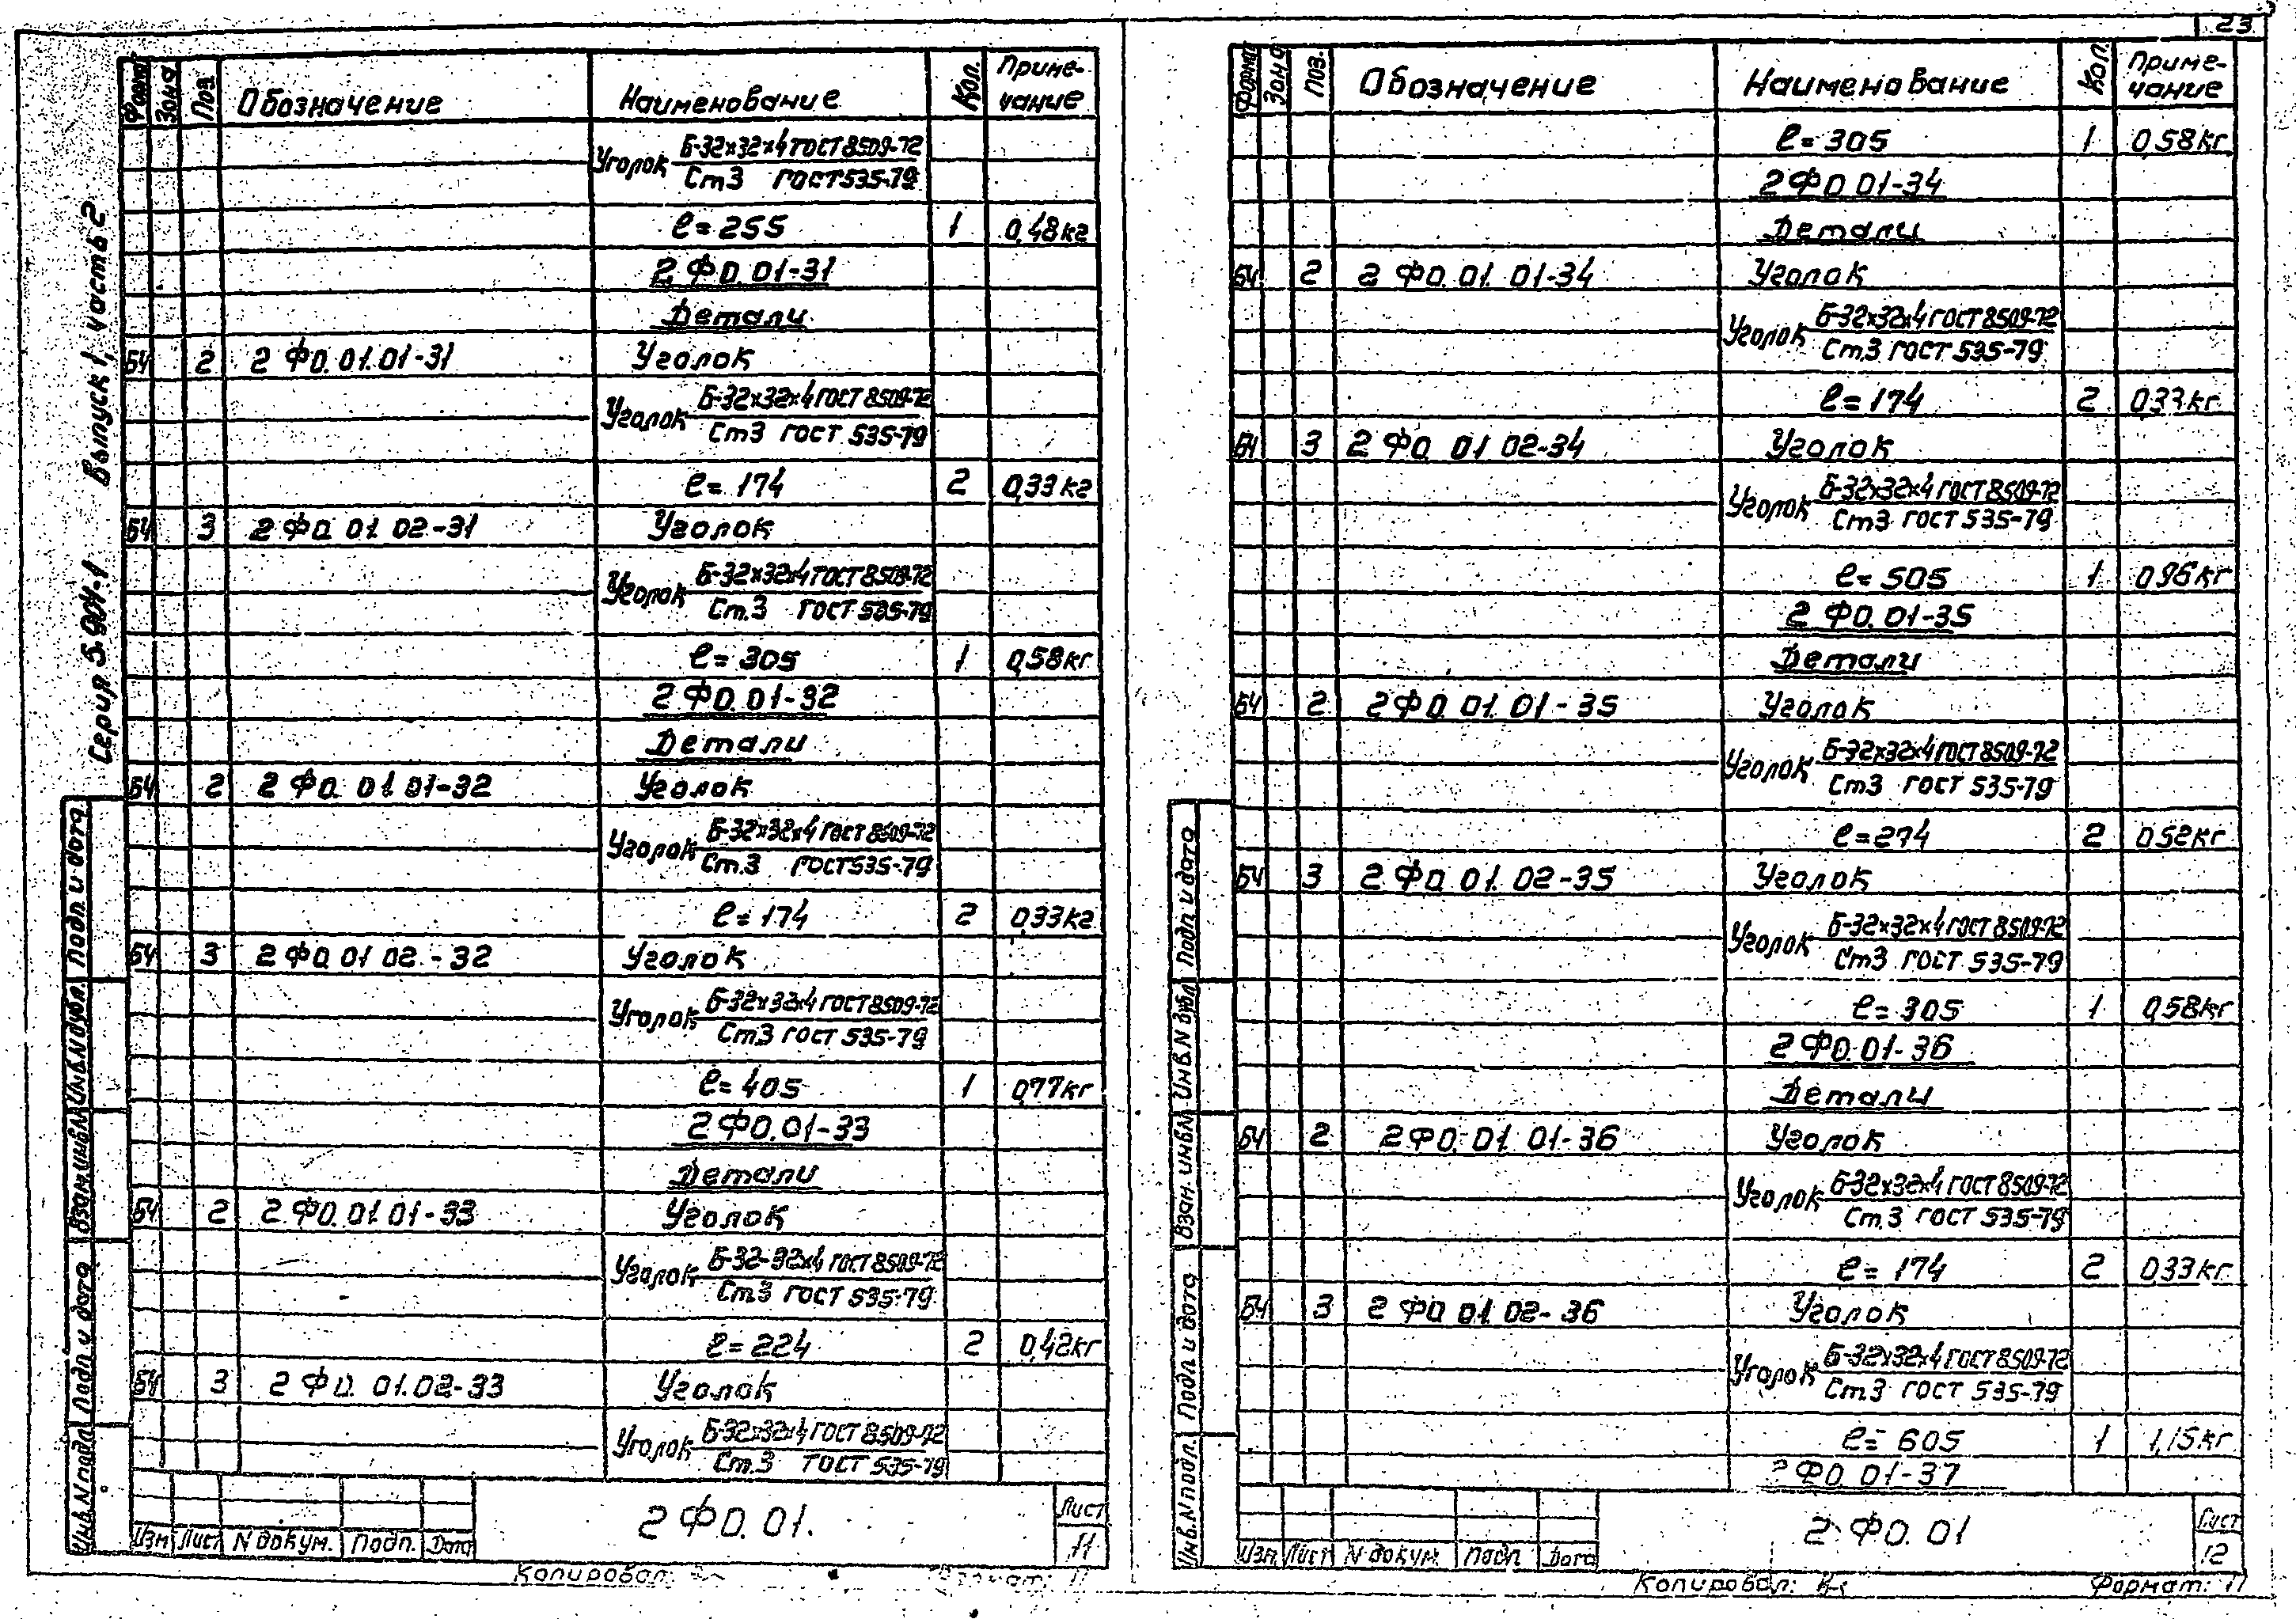 23
Серия 5.904-1 Выпуск 1, часть 2
Формат Зона Поз. Обозначение Наименование Кол. Приме-
чание
Уголок Б-32х32х4 ГОСТ 8509-72
Ст3 ГОСТ 535-79
ℓ=255 1 0,48кг
2 ФО. 01-31
Детали
БЧ 2 2 ФО. 01. 01-31 Уголок
Уголок Б-32х32х4 ГОСТ 8509-72
Ст3 ГОСТ 535-79
ℓ= 174 2 0,33кг
БЧ 3 2 ФО. 01. 02-31 Уголок
Уголок Б-32х32х4 ГОСТ 8509-72
Ст.3 ГОСТ 535-79
ℓ= 305 1 0,58кг
2 ФО. 01-32
Детали
БЧ 2 2 ФО. 01. 01-32 Уголок
Уголок Б-32х32х4 ГОСТ 8509-72
Ст.3 ГОСТ 535-79
ℓ= 174 2 0,33кг
БЧ 3 2 ФО. 01 02.-32 Уголок
Уголок Б-32х32х4 ГОСТ 8509-72
Ст.3 ГОСТ 535-79
ℓ= 405 1 0,77кг
2 ФО. 01-33
Детали
БЧ 2 2 ФО. 01. 01-33 Уголок
Уголок Б-32-32х4 ГОСТ 8509-72
Ст.3 ГОСТ 535-79
ℓ= 224 2 0,42кг
БЧ 3 2 ФО. 01.02-33 Уголок
Уголок Б-32х32х4 ГОСТ 8509-72
Ст.3 ГОСТ 535-79
Инв.N подл. Подп. и дата Взам.инв.N Инв.N дубл. Подп. и дата
2 ФО. 01.
Лист
11
Изм Лист N докум. Подп. Дата
Копировал:
Формат: 11
Формат Зона Поз. Обозначение Наименование Кол. Приме-
чание
ℓ= 305 1 0,58кг
2 ФО 01-34
Детали
БЧ 2 2 ФО. 01. 01-34 Уголок
Уголок Б-32х32х4 ГОСТ 8509-72
Ст.3 ГОСТ 535-79
ℓ= 174 2 0,33кг
БЧ 3 2 ФО 01 02-34 Уголок
Уголок Б-32х32х4 ГОСТ 8509-72
Ст3 ГОСТ 535-79
ℓ= 505 1 0,96кг
2 ФО. 01-35
Детали
БЧ 2 2 ФО. 01. 01-35 Уголок
Уголок Б-32х32х4 ГОСТ 8509-72
Ст3 ГОСТ 535-79
ℓ=274 2 0,52кг
БЧ 3 2 ФО. 01. 02-35 Уголок
Уголок Б-32х32х4 ГОСТ 8509-72
Ст3 ГОСТ 535-79
ℓ= 305 1 0,58кг
2 ФО. 01-36
Детали
БЧ 2 2 ФО. 01. 01-36 Уголок
Уголок Б-32х32х4 ГОСТ 8509-72
Ст.3 ГОСТ 535-79
ℓ= 174 2 0,33кг
БЧ 3 2 ФО 01. 02-36 Уголок
Уголок Б-32х32х4 ГОСТ 8509-72
Ст.3 ГОСТ 535-79
ℓ= 605 1 1,15кг
2 ФО. 01-37
Инв.N подл. Подп. и дата Взам. инв.N Инв.N дубл Подп. и дата
2 ФО. 01
Лист
12
Изм Лист N докум. Подп Дата
Копировал:
Формат: 11